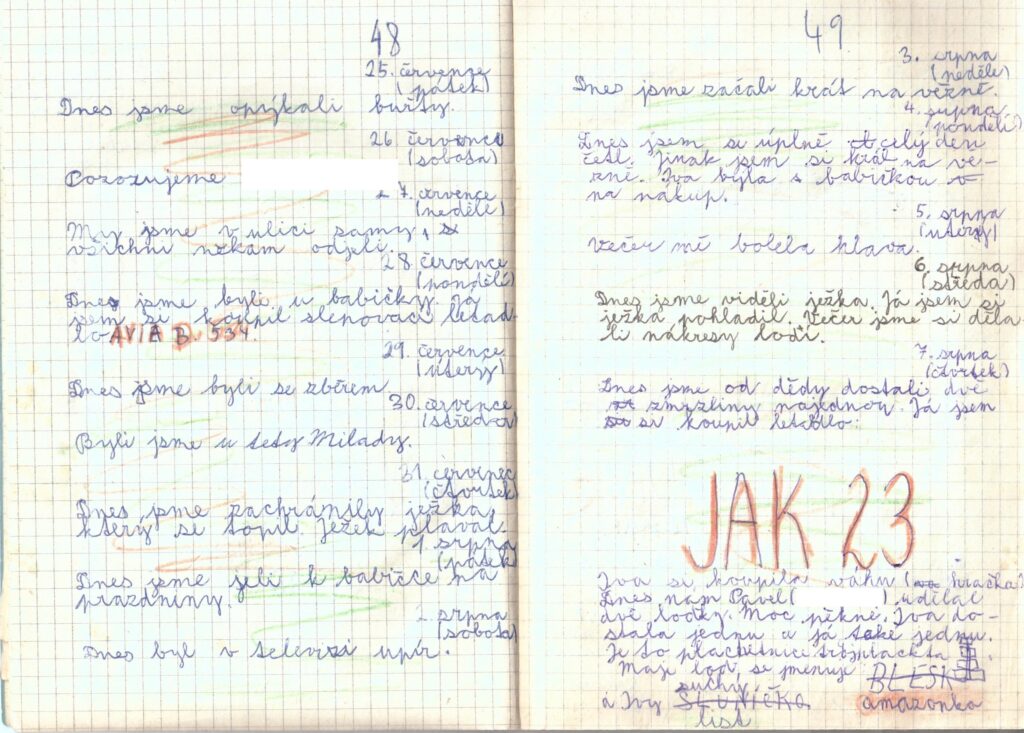 48
25. července
(pátek)
Dnes jsme opýkali buřty.
26. července
(sobota)
Pozorujeme
27. července
(neděle)
My jsme v ulici samy,
všichni někam odjeli.
28 července
(pondělí)
Dnes jsme byli u babičky. Já
jsem si koupil slepovací letad-
lo AVIA B. 534.
29. července
(úterý)
Dnes jsme byli se sběrem
30. července
(středa)
Byli jsme u tety Milady.
31. červenec
(čtvrtek)
Dnes jsme zachránily ježka,
který se topil. Ježek plaval.
1. srpna
(pátek)
Dnes jsme jeli k babičce na
prazdniny.
2. srpna
(sobota)
Dnes byl v televizi upír.
49
3. srpna
(neděle)
Dnes jsme začali hrát na vězně.
4. srpna
(pondělí)
Dnes jsem si úplně celý den
četl. Jinak jsem si hrál na vě-
zně. Iva byla s babičkou
na nákup.
5. srpna
(úterý)
Večer mě bolela hlava.
6. srpna
(středa)
Dnes jsme viděli ježka. Já jsem si
ježka pohladil. Večer jsme si děla-
li nákresy lodí.
7. srpna
(čtvrtek)
Dnes jsme od dědy dostali dvě
zmrzliny najednou. Já jsem
si koupil letadlo:
JAK 23
Iva si koupila váhu ( hračka)
Dnes nám Pavel ( ) udělal
dvě loďky. Moc pěkné. Iva do-
stala jednu a já také jednu.
Je to plachetnice
Moje loď, se jmenuje BLESK
suchý
a Ivy SLUNÍČKO amazonka
list